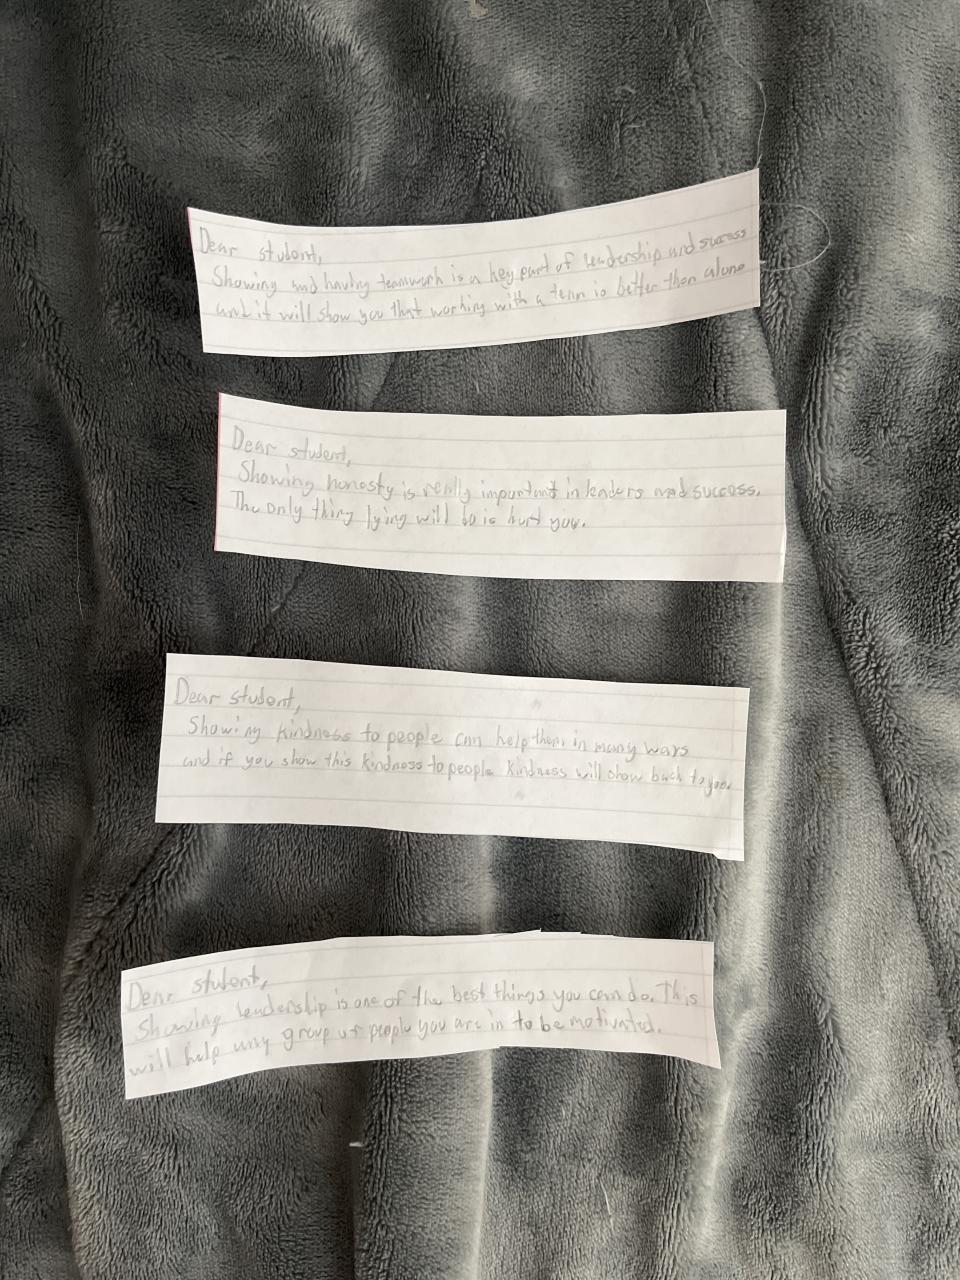 Dear student,
Showing and having teamwork is a key part of leadership and success
and it will show you that working with a team is better than alone
Dear student,
Showing honesty is really important in leaders and success.
The only thing lying will do is hurt you.
Dear student,
Showing kindness to people can help them in many ways
and if you show this kindness to people kindness will show back to you.
Dear student,
Showing leadership is one of the best things you can do. This
will help any group of people you are in to be motivated.